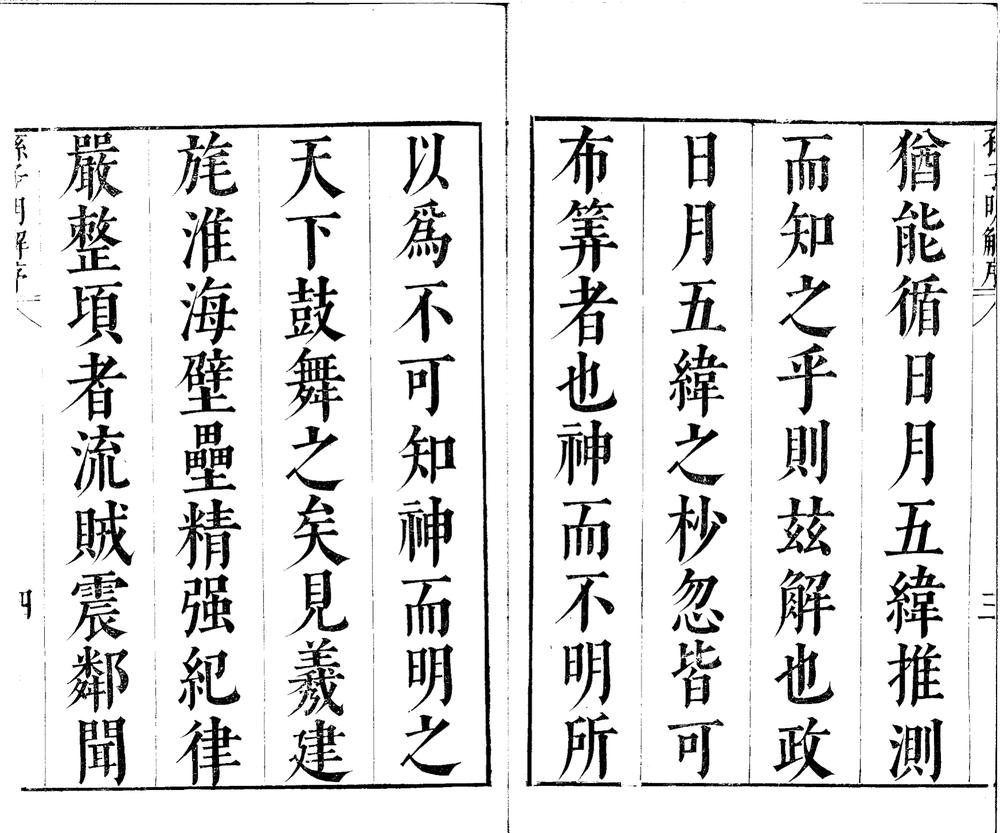 孫子明解序
三
猶能循日月五緯推測
而知之乎則茲解也政
日月五緯之杪忽皆可
布筭者也神而不明所
以爲不可知神而明之
天下鼓舞之矣見羲建
旄淮海壁壘精强紀律
嚴整頃者流賊震鄰聞
孫子明解序
四